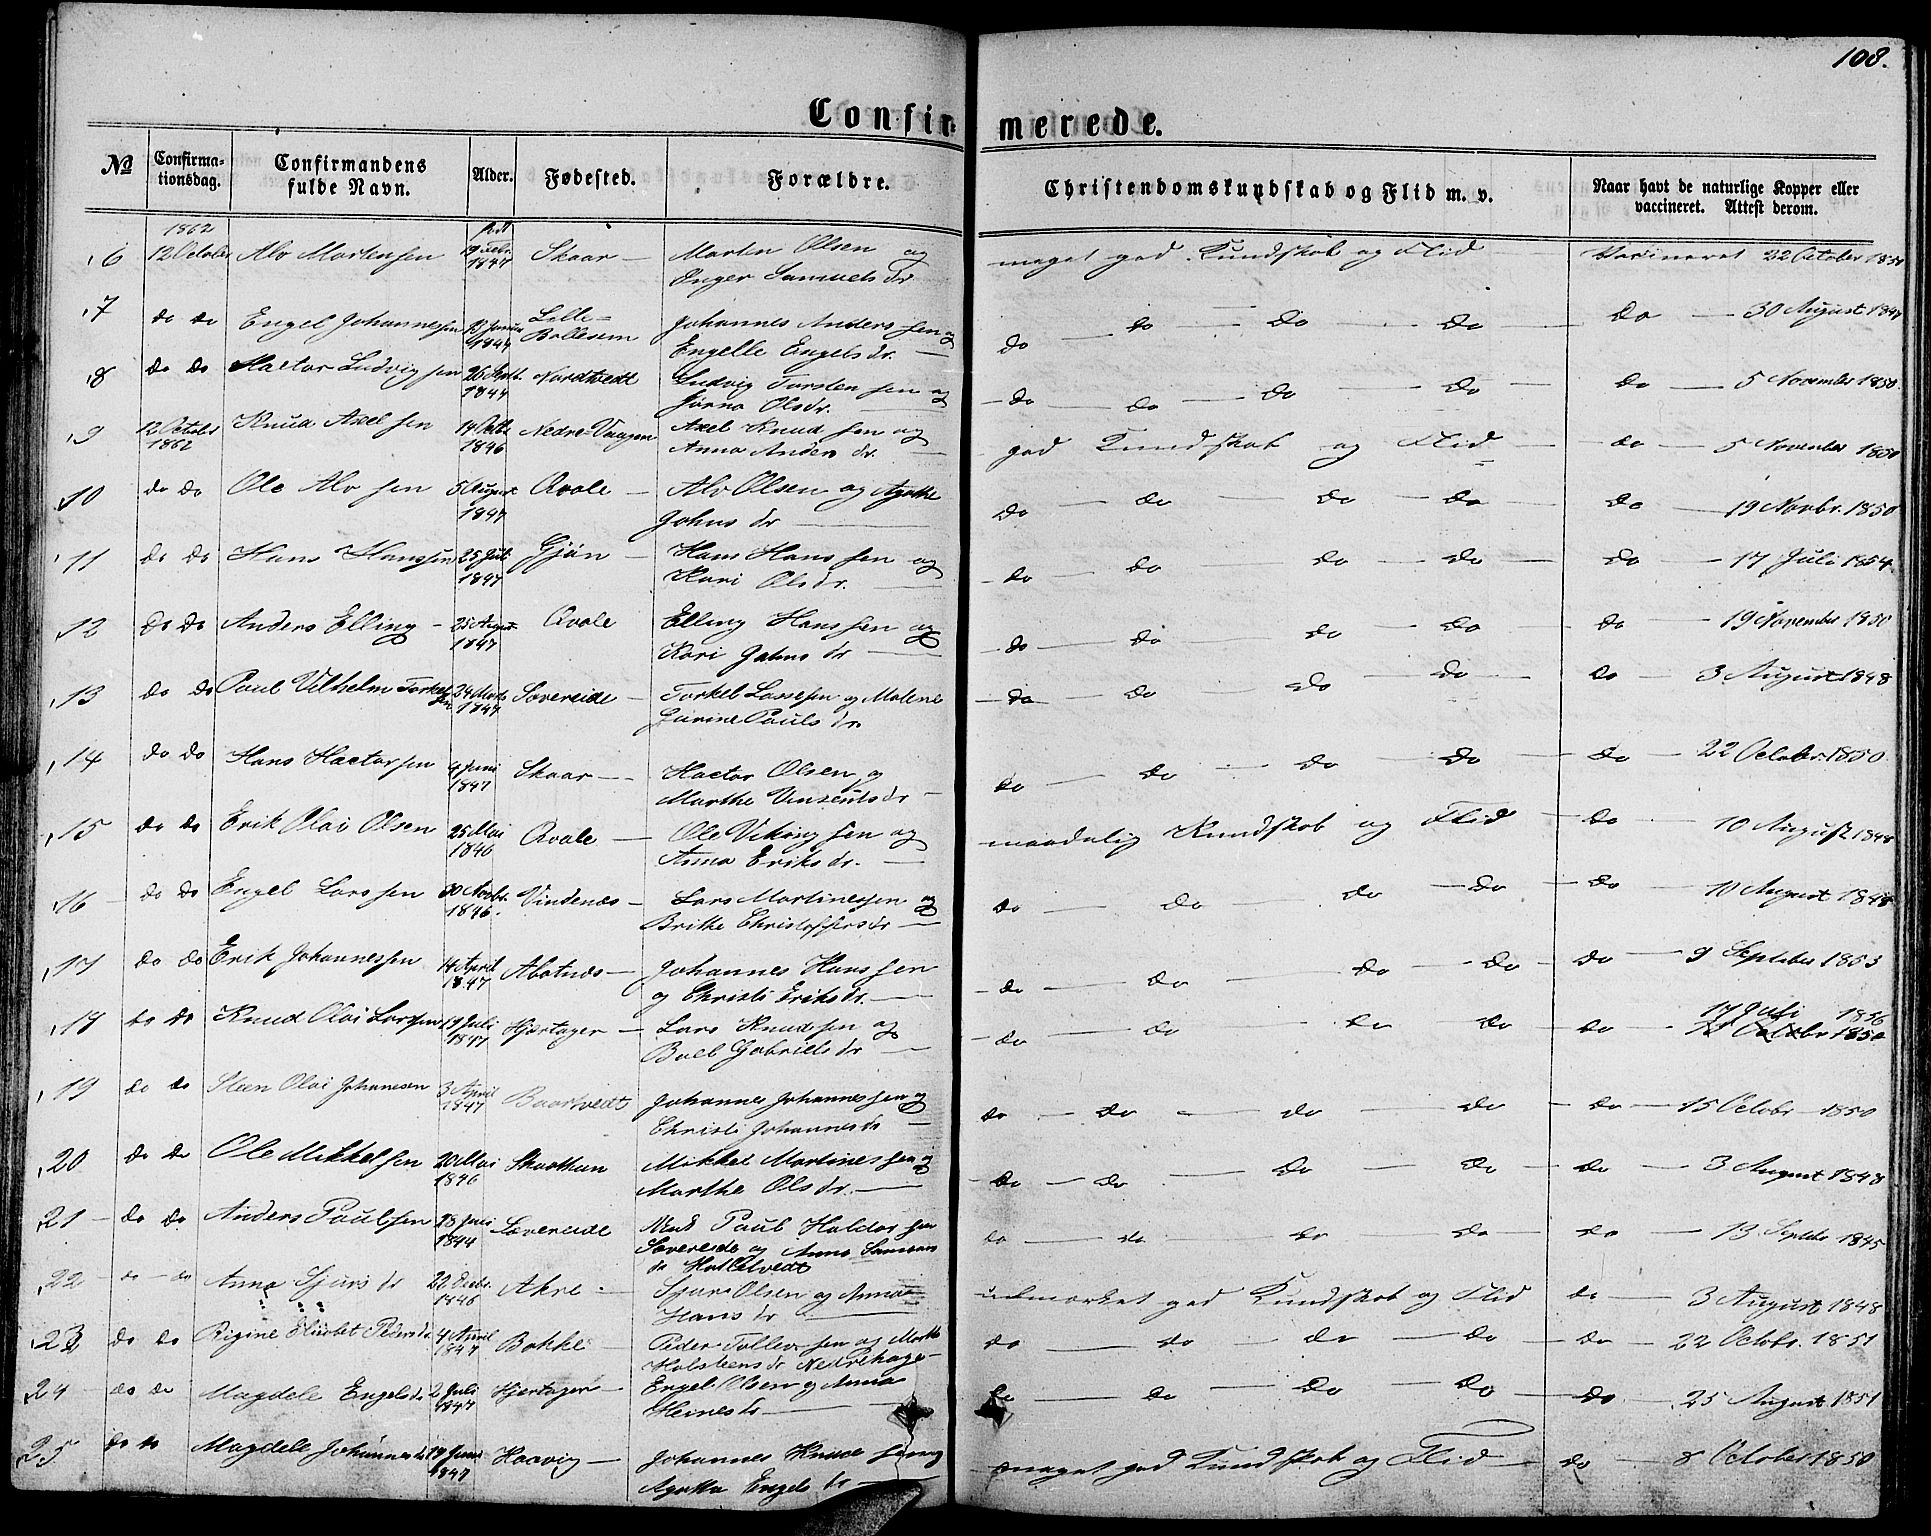 108.
Confirmerede.
No
Confirmationsdag.
Confirmandens fulde Navn.
Alder.
Fødested.
Forældre.
Christendomskundskab og Flid m. v.
Naar havt de naturlige Kopper eller vaccineret. Attest derom.
1862
6 12 October Alv Martensen 1847 Skaar — Marten Olsen og meget god Kundskab og Flid Vacineret 22 October
Enger Samuels dr
7 do do Engel Johannessen 13 Januar 1847 Lille- Johannes Anders sen og do — do — do — do — do — 30 August 1847
Engelle Engels dr. —
8 do do Hactor Ludvig sen 26 Septb. Nordtvedt Ludvig Torsten sen og do — do — do — do — do — 5 November 1850
Olsdr. —
9 12 October 1862 Knud Axel sen 14 1846 Nedre-Vaagen Axel Knud sen og god Kundskab og Flid — do — 5 November 1850
Anna Anders dr. —
10 do do Ole Alv sen 5 August 1847 Qvale — Alv Olsen og Agathe do — do — do — do — do — 19 Novbr. 1850
Johns dr —
11 do do Hans Hanssen 25 Juli 1847 Gjøn — Hans Hans sen og do — do — do — do — do — 17 Juli 1854
Kari Olsdr. —
12 do do Anders Elling — 25 August 1847 Qvale Elling Hans sen og do — do — do — do — do — 19 November 1850
Kari Johns dr —
13 do do Paul Vilhelm Torkelsen 24 Marts 1847 Sævereide — Torkel Lassesen og Malene do — do — do — do — do — 3 August 1848
Gurine Pauls dr.
14 do do Hans Hactor sen 4 Juni 1847 Skaar — Hactor Olsen og do — do — do — do — do — 22 Octobr. 1850
Marthe Vinsents dr —
15 do do Erik Olai Olsen 25 Mai 1846 Qvale — Ole Viking sen og maadelig Kundskab og Flid — do — 10 August 1848
Anna Eriks dr. —
16 do do Engel Lars sen 30 Novbr. 1846. Vindenæs — Lars Martinessen og do — do — do — do — do — 10 August 1848
Brithe Christoffers dr —
17 do do Erik Johannessen 14 April 1847 Alvtnæs — Johannes Hans sen do — do — do — do — do — 9 September 1853
og Christi Eriks dr. —
18 do do Knud Olai Larssen 19 Juli 1847 Hjertager — Lars Knud sen og do — do — do — do — do — 17 Juli 1856
Boel Gabriels dr — Octobr 1850
19 do do Steen Olai Johannesen 3 April 1847 Baartvedt Johannes Johannessen og do — do — do — do — do — 15 Octobr 1850
Christi Johannesdr —
20 do do Ole Mikkel sen 20 Mai 1846 Skarthun Mikkel Martines sen og do — do — do — do — do — 3 August 1848
Marthe Olsdr. —
21 — do do Anders Paulsen Juni 1844 Sævereide Paul Haldor sen do — do — do — do — do — 13 Septbr 1845
Sævereide og Anna
22 do — do Anna Sjurs dr 22 Decbr. 1846 Akre — Sjurs Olsen og Anna udmærket god Kundskab og Flid do — 3 August 1848
Hans dr —
23 do do Rigine Elisabet Pedersdr 4 April 1847 Bakke — Peder Tollev sen og Marthe do — do — do — do — do — 22 Octobr. 1851
Holsteens dr Nedrehage —
24 — do do Magdele Engelsdr 2 Juli 1847 Hjertager — Engel Olsen og Anna do — do — do — do — do — 25 August 1851
Heines dr —
25 do do Magdele Johannesdr 19 Juni 1847 Haavig — Johannes Knud sen og meget god Kundskab og Flid — do — 8 October 1850
Agatha Engels dr —